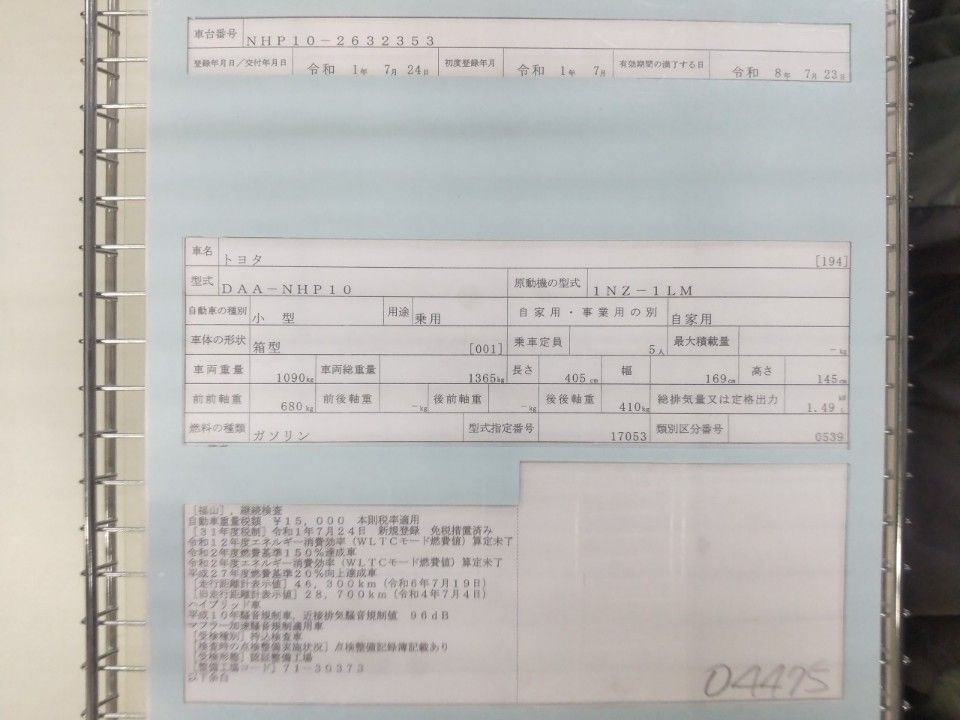 車台番号 NHP10-2632353
登録年月日/交付年月日 令和 1年 7月 24日 初度登録年月 令和 1年 7月 有効期間の満了する日 令和 8年 7月 23日
車名 トヨタ [194]
型式 DAA-NHP10 原動機の型式 1NZ-1LM
自動車の種別 小 型 用途 乗用 自家用・事業用の別 自家用
車体の形状 箱型 [001] 乗車定員 5人 最大積載量 -kg
車両重量 1090kg 車両総重量 1365kg 長さ 405cm 幅 169cm 高さ 145cm
前前軸重 680kg 前後軸重 -kg 後前軸重 -kg 後後軸重 410kg 総排気量又は定格出力 1.49
燃料の種類 ガソリン 型式指定番号 17053 類別区分番号 0539
[福山],継続検査
自動車重量税額 ¥15,000 本則税率適用
[31年度税制]令和1年7月24日 新規登録 免税措置済み
令和12年度エネルギー消費効率(WLTCモード燃費値)算定未了
令和2年度燃費基準150%達成車
令和2年度エネルギー消費効率(WLTCモード燃費値)算定未了
平成27年度燃費基準20%向上達成車
[走行距離計表示値]46,300km(令和6年7月19日)
[旧走行距離計表示値]28,700km(令和4年7月4日)
ハイブリッド車
平成10年騒音規制車,近接排気騒音規制値 96dB
マフラー加速騒音規制適用車
[受検種別]持込検査車
[検査時の点検整備実施状況]点検整備記録簿記載あり
[受検形態]認証整備工場
[整備工場コード]71-30373
以下余白
04475